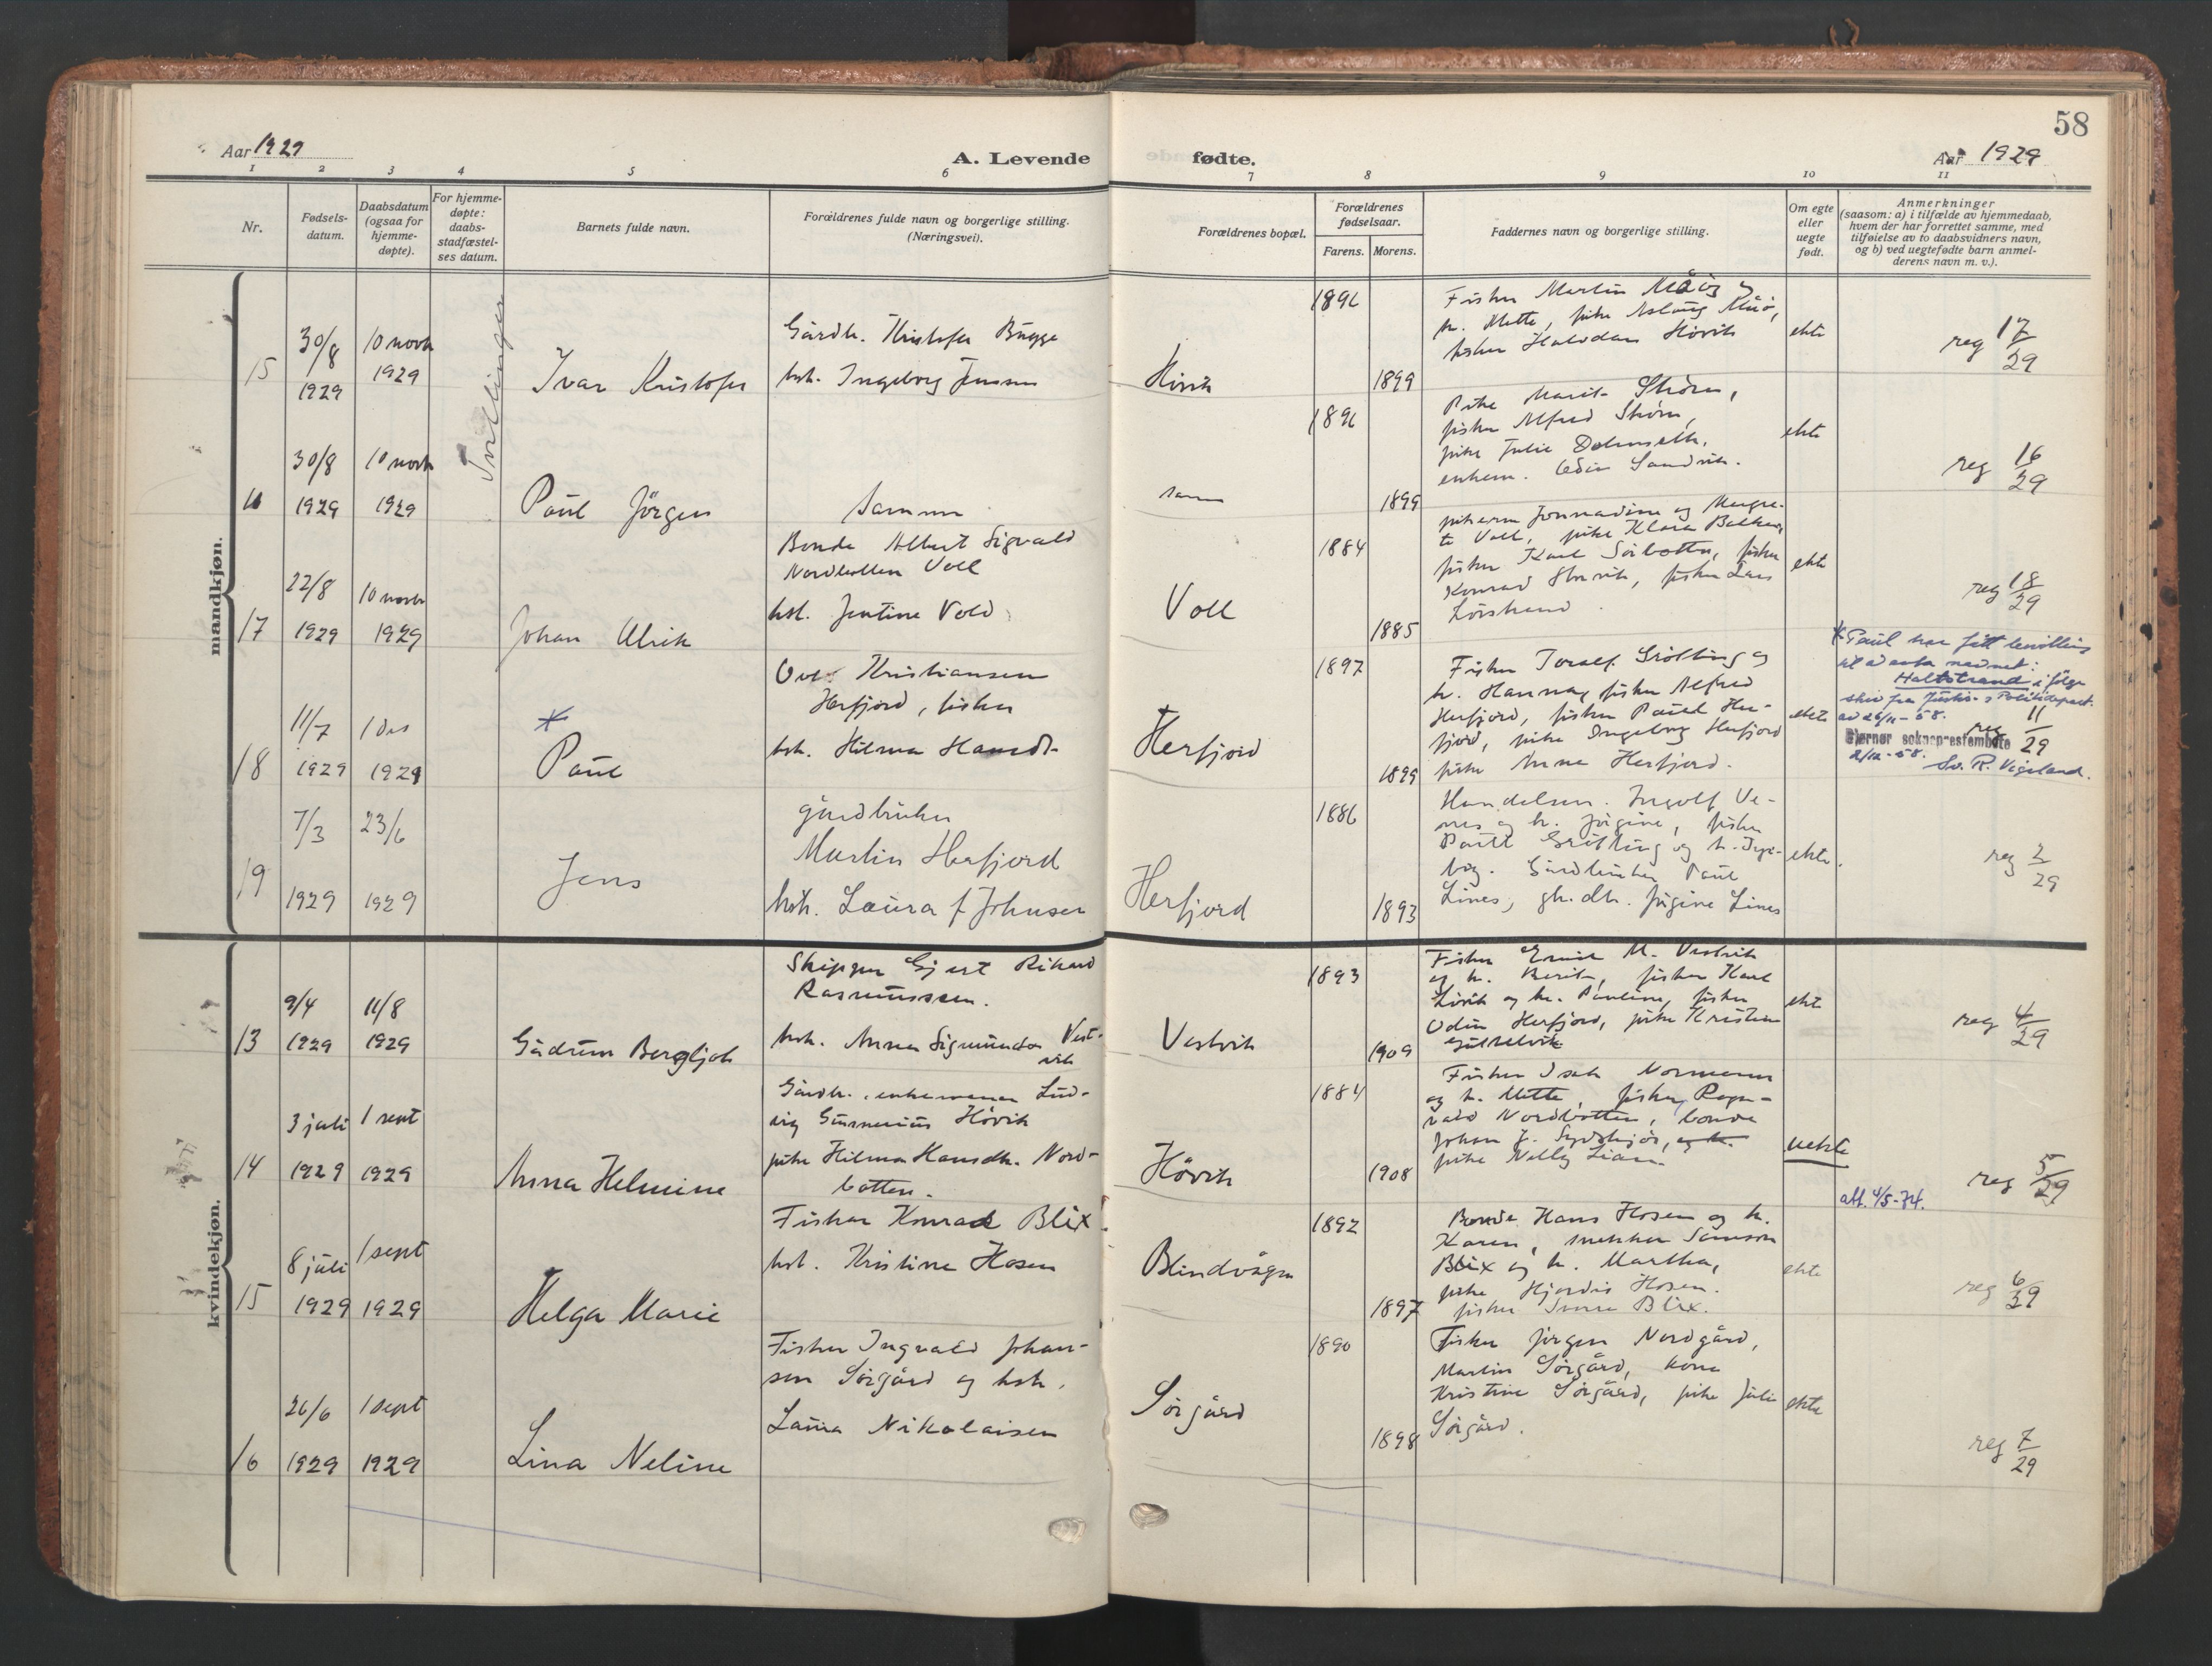 58
Aar 1929
A. Levende
fødte.
Aar 1929
1 2 3 4 5 6 7 8 9 10 11
Nr.
Fødsels-
datum.
Daabsdatum
(ogsaa for
hjemme-
døpte).
For hjemme-
døpte:
daabs-
stadfæstel-
ses datum.
Barnets fulde navn.
Forældrenes fulde navn og borgerlige stilling.
(Næringsvei).
Forældrenes bopæl.
Forældrenes
fødselsaar.
Farens. Morens.
Faddernes navn og borgerlige stilling.
Om egte
eller
uegte
født.
Anmerkninger
(saasom: a) i tilfælde av hjemmedaab,
hvem der har forrettet samme, med
tilføielse av to daabsvidners navn,
og b) ved uegtefødte barn anmel-
derens navn m. v.).
mandkjøn.
Tvillinger
15
30/8
1929
10 novbr
1929
Ivar Kristofer
Gårdbr. Kristofer Bugge
hst. Ingeborg Jensen
Hövik
1899
Fisker Martin
k. Mette, pike Aslaug
fisker Halvdan Hövik
ekte
reg 17/29
16
30/8
1929
10 novbr
1929
Paul Jörgen
Samme
same
1899
Pike Marit Ström,
fisker Alfred Ström,
pike Julie
enkem. Edin Sandvik.
ekte
reg 16/29
17
22/8
1929
10 novbr
1929
Johan Ulrik
Bonde Albert Sigvald
Nordbotten Voll
hst. Jentine Vold
Voll
1884
1885
Voll, pike Klara
fisker Karl Sörbotten, fisker
Konrad fisker Lars
ekte
reg 18/29
18
11/7
1929
1 des
1929
*
Paul
Kristiansen
Herfjord, fisker
hst. Hilma
Herfjord
1897
1899
Fisker Grötting og
k. Hanna, fisker Alfred
Herfjord, fisker Paul Her-
fjord, pike Ingeborg Herfjord
pike Anna Herfjord.
ekte
* Paul har fått bevilling
til å anta navnet:
Haltstrand ifölge
skriv fra Justis- og Politidepart.
av 26/11-58.
Bjørnør sokneprestembete
2/12-58.
Sv. R. Vigeland.
reg 11/29
19
7/3
1929
23/6
1929
Jens
gårdbruker
Martin Herfjord
hst. Laura f. Johnsen
Herfjord
1886
1893
Handelsm. Ingolf Ve-
nes og k. Jörgine, fisker
Paul Grötting og k. Inge-
borg. Gårdbruker Paul
Lines, jörgine Lines
ekte.
reg 2/29
kvindekjøn.
13
9/4
1929
11/8
1929
Gudrun Bergljot
Skipper Gjert Rikard
Rasmussen.
hst. Anna Sigmunda Vest-
vik
Vestvik
1893
1909
Fisker M. Vestvik
og k. Berit, fisker Karl
og k. Pauline, fisker
Odin Herfjord, pike Kristine
ekt
reg 4/29
14
3 juli
1929
1 sept
1929
Anna Helmine
Gårdbr. enkemann Lud-
vig Gunnerius Hövik
pike Hilma Hansdtr. Nord-
botten.
Hövik
1884
1908
Fisker Isak Normann
og k. Mette, fisker Ragn-
vald Nordbotten, bonde
Johan J. Sydskjör, og k.
pike Nelly Lian
uekte
reg 5/29
att. 4/5-74.
15
8 juli
1929
1 sept
1929
Helga Marie
Fisker Konrad Blix
hst. Kristine Hosen
Blindvågen
1892
1897
Bonde Hans Hosen og k.
Karen, snekker Samson
Blix og k. Martha,
pike Hjördis Hosen.
fisker Blix.
ekte
reg 6/29
16
26/6
1929
1 sept
1929
Lina Neline
Fisker Ingvald Johan-
sen Sörgård og hst.
Laura Nikolaisen
Sörgård
1890
1898
Fisker Jörgen Nordgård,
Martin Sörgård, kona
Kristine Sörgård, pike Juli
Sörgård.
ekte
reg 7/29